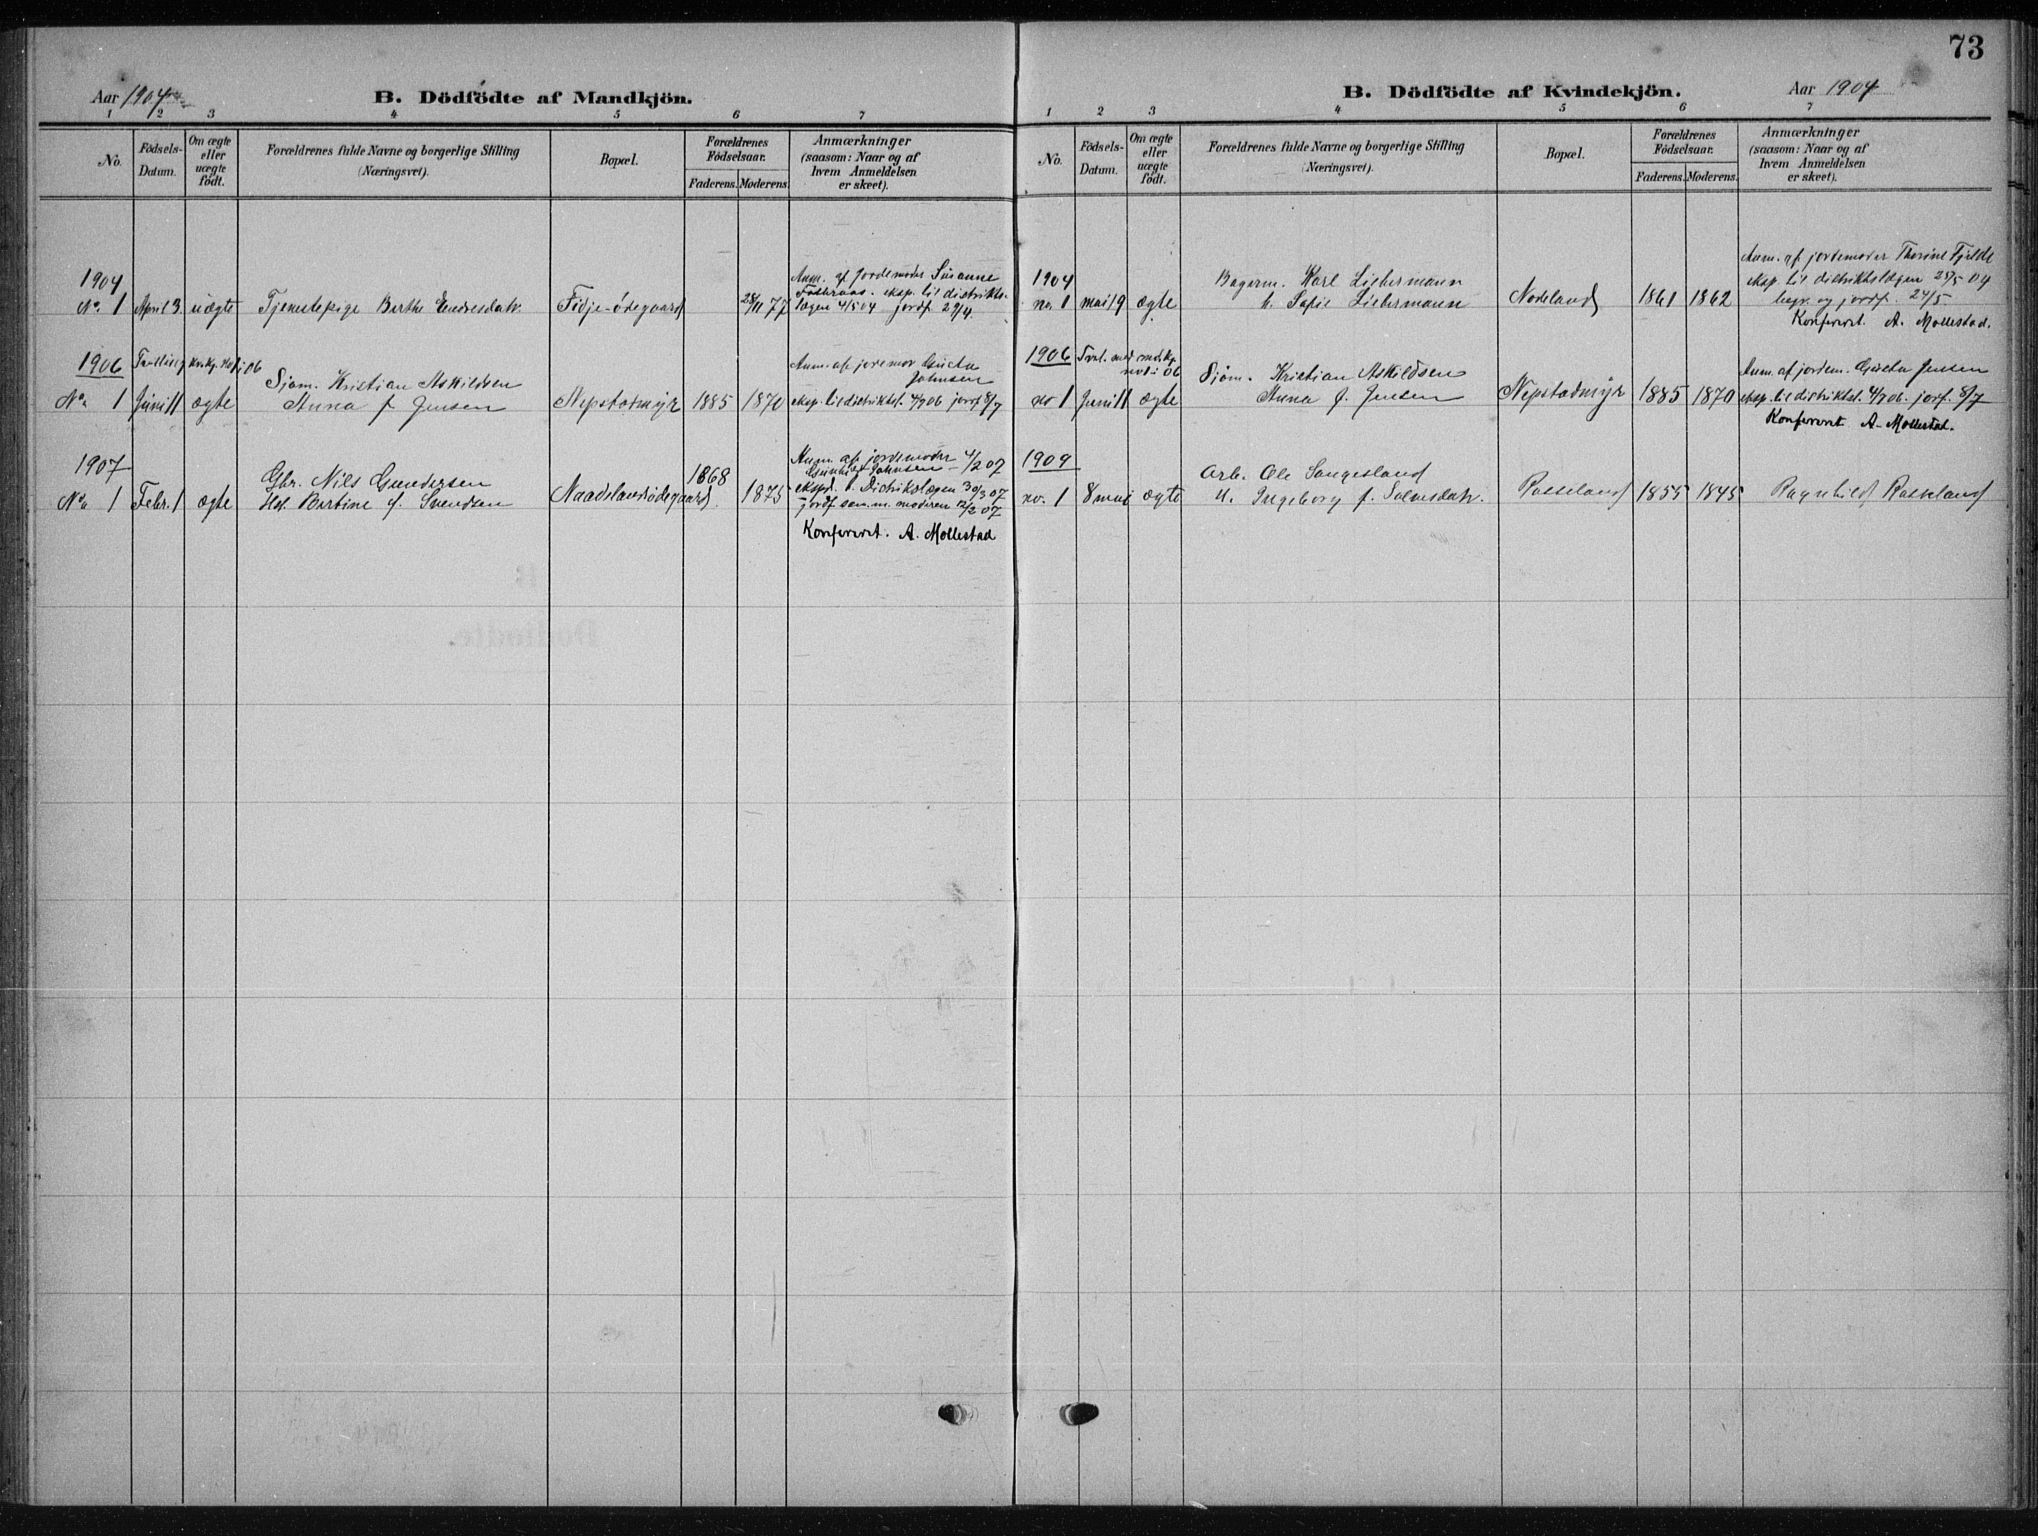 73
Aar 1904
B. Dödfödte af Mandkjön.
1 2 3 4 5 6 7
No.
Födsels-
Datum.
Om ægte
eller
uægte
födt.
Forældrenes fulde Navne og borgerlige Stilling
(Næringsvei).
Bopæl.
Forældrenes
Födselsaar.
Faderens. Moderens.
Anmærkninger
(saasom: Naar og af
hvem Anmeldelsen
er skeet).
1904
No. 1 April 3. uægte Tjenestepige Berthe Endresdatr. Fidje-ödegaard 28/11 77
Anm. af jordemoder Susanne
eksp. til distrikts-
lægen 4/5 04 jordf. 29/4.
1906
Tvilling kvkj. no 1 i 06
No. 1 Juni 11 ægte
Sjöm. Kristian Askildsen
Anna f. Jensen
Nepstadmyr 1885 1870
Anm. af jordemor
Johnsen
eksp. til distriktsl. 4/7 06 jordf. 8/7
1907
No. 1 Febr. 1 ægte
Gbr. Nils Gundersen
Hst. Bertine f. Svendsen
Naadelandsödegaard 1868 1875
Anm. af jordemoder
Johnsen 4/2 07
eksped. t. Distriktslægen 30/3 07
jordf. sam. m. moderen 12/2 07
Konfereret. A. Mollestad
B. Dödfödte af Kvindekjön.
Aar 1904
1 2 3 4 5 6 7
No.
Födsels-
Datum.
Om ægte
eller
uægte
födt.
Forældrenes fulde Navne og borgerlige Stilling
(Næringsvei).
Bopæl.
Forældrenes
Födselsaar.
Faderens. Moderens.
Anmærkninger
(saasom: Naar og af
hvem Anmeldelsen
er skeet).
1904
no. 1 mai 19 ægte
Bagerm. Karl Liebermann
h. Sofie Liebermann
Nodeland 1861 1862
Anm. af jordemoder Thorine Fjelde
eksp. til distriktslægen 28/5 04
begr. og jordf. 24/5
Konfereret. A. Mollestad.
1906
Tvil. med mdkj.
no 1 i 06
no 1 Juni 11 ægte
Sjöm. Kristian Askildsen
Anna f. Jensen
Nepstadmyr 1885 1870
Anm. af jordem. Jensen
eksp. til distriktsl. 4/7 06. jordf. 8/7
Konfereret A. Mollestad.
1909
no. 1 8 mai ægte
Arb. Ole Sangesland
H. Ingeborg f. Salvesdatr.
Rosseland 1855 1845 Ragnhild Rosseland